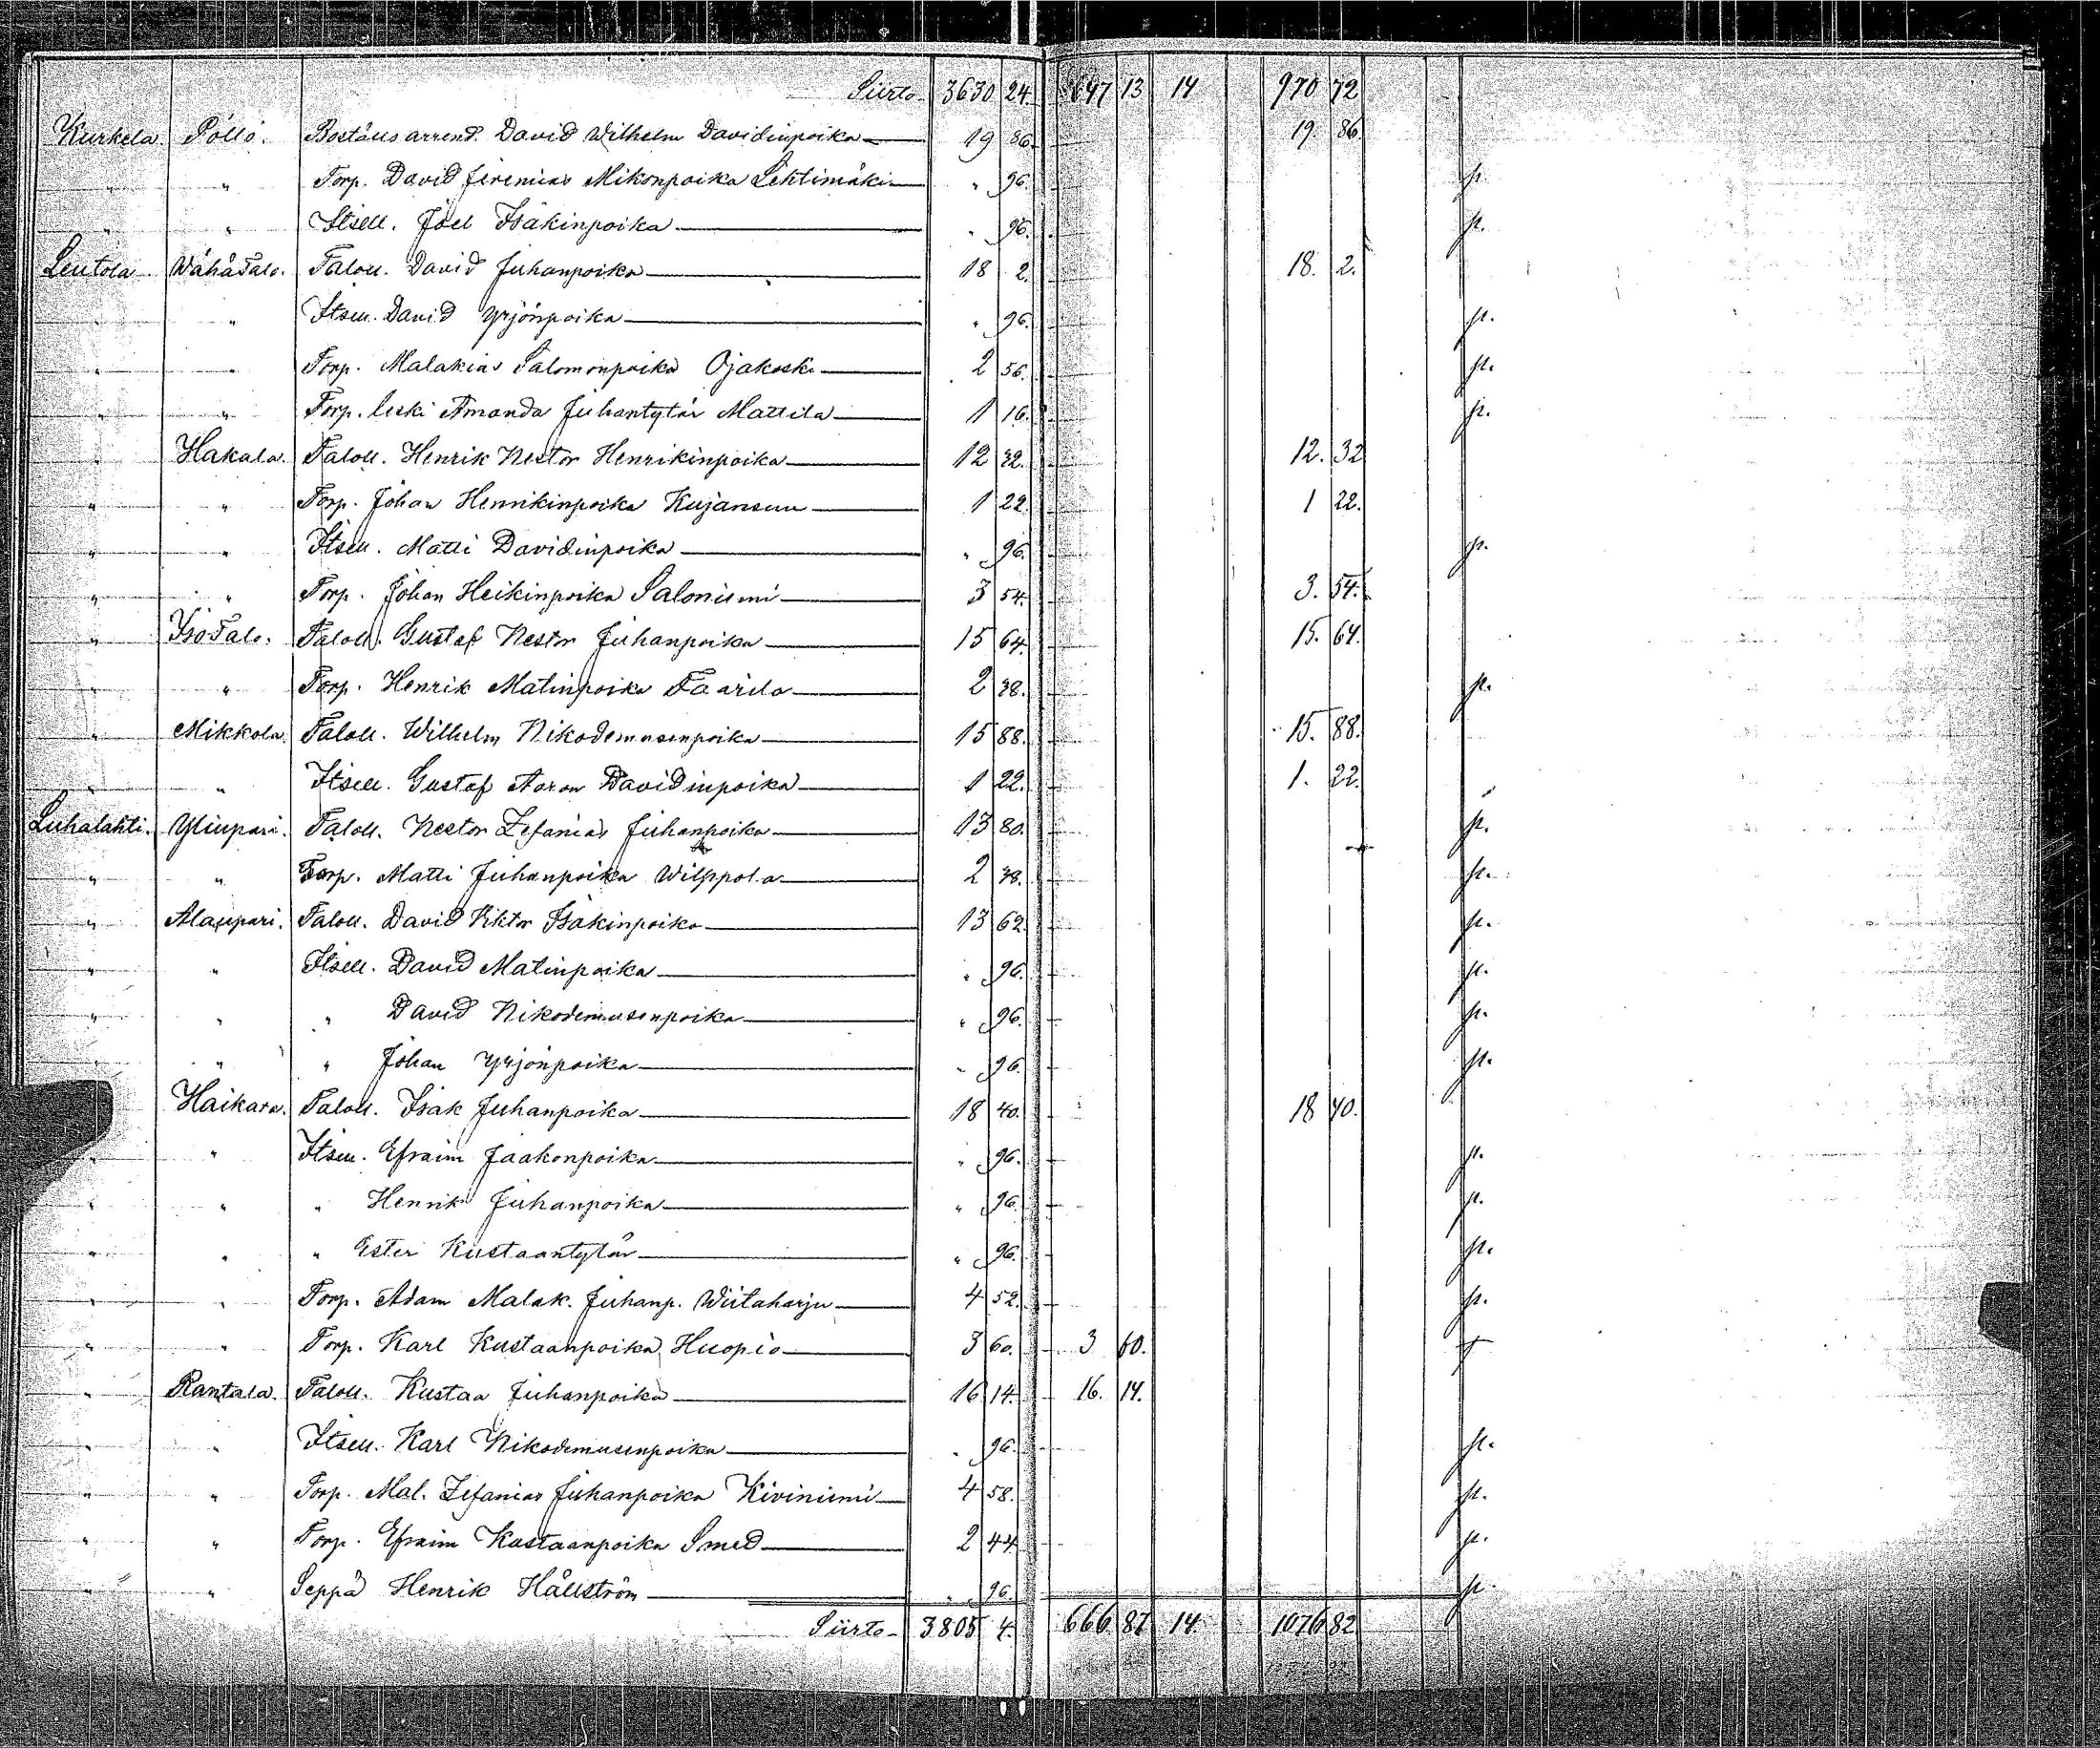 Siirto 3630 24. 647 13 14 970 72
Kurkela. Pöllö. Boställs arrend. David Wilhelm Davidinpoika 19 86. 19. 86.
" " Torp. David Jeremias Mikonpoika Lehtimäki " 96. p.
" " Itsell. Joel Isäkinpoika " 96. p.
Leutola Wähä Talo. Taloll. David Juhanpoika 18 2. 18. 2.
" " Itsell. David Yrjönpoika " 96. p.
" " Torp. Malakias Salomonpoika Ojakoski 2 56. p.
" " Torp. leski Amanda Juhantytär Mattila 1 16. p.
" Hakala. Taloll. Henrik Nestor Henrikinpoika 12 32. 12. 32
" " Torp. Johan Henrikinpoika Kujansuu 1 22. 1 22.
" " Itsell. Matti Davidinpoika " 96. p.
" " Torp. Johan Heikinpoika Saloniemi 3 54. 3. 54.
" Iso Talo. Taloll. Gustaf Nestor Juhanpoika 15 64. 15. 64.
" " Torp. Henrik Matinpoika Taarila 2 38. p.
" Mikkola. Taloll. Wilhelm Nikodemusenpoika 15 88. 15. 88.
" " Itsell. Gustaf Aaron Davidinpoika 1 22. 1. 22.
Luhalahti. Yliupari. Taloll. Nestor Zefanias Juhanpoika 13 80. p.
" " Torp. Matti Juhanpoika Wilppola 2 38. p.
" Alaupari. Taloll. David Viktor Isäkinpoika 13 62. p.
" " Itsell. David Matinpoika " 96. p.
" " " David Nikodemusenpoika " 96. p.
" " " Johan Yrjönpoika " 96. p.
Haikara. Taloll. Isak Juhanpoika 18 40. 18 40.
" " Itsell. Efraim Jaakonpoika " 96. p.
" " " Henrik Juhanpoika " 96. p.
" " " Ester Kustaantytär " 96. p.
" " Torp. Adam Malak. Juhanp. Wiitaharju 4 52. p.
" " Torp. Karl Kustaanpoika Huopio 3 60. 3 60.
" Rantala. Taloll. Kustaa Juhanpoika 16 14. 16. 14.
" " Itsell. Karl Nikodemusenpoika " 96. p.
" " Torp. Mal. Zefanias Juhanpoika Kiviniemi 4 58. p.
" " Torp. Efraim Kustaanpoika Smed 2 44. p.
" " Seppä Henrik Hållström " 96. p.
Siirto 3805 4. 666 87 14. 1076 82